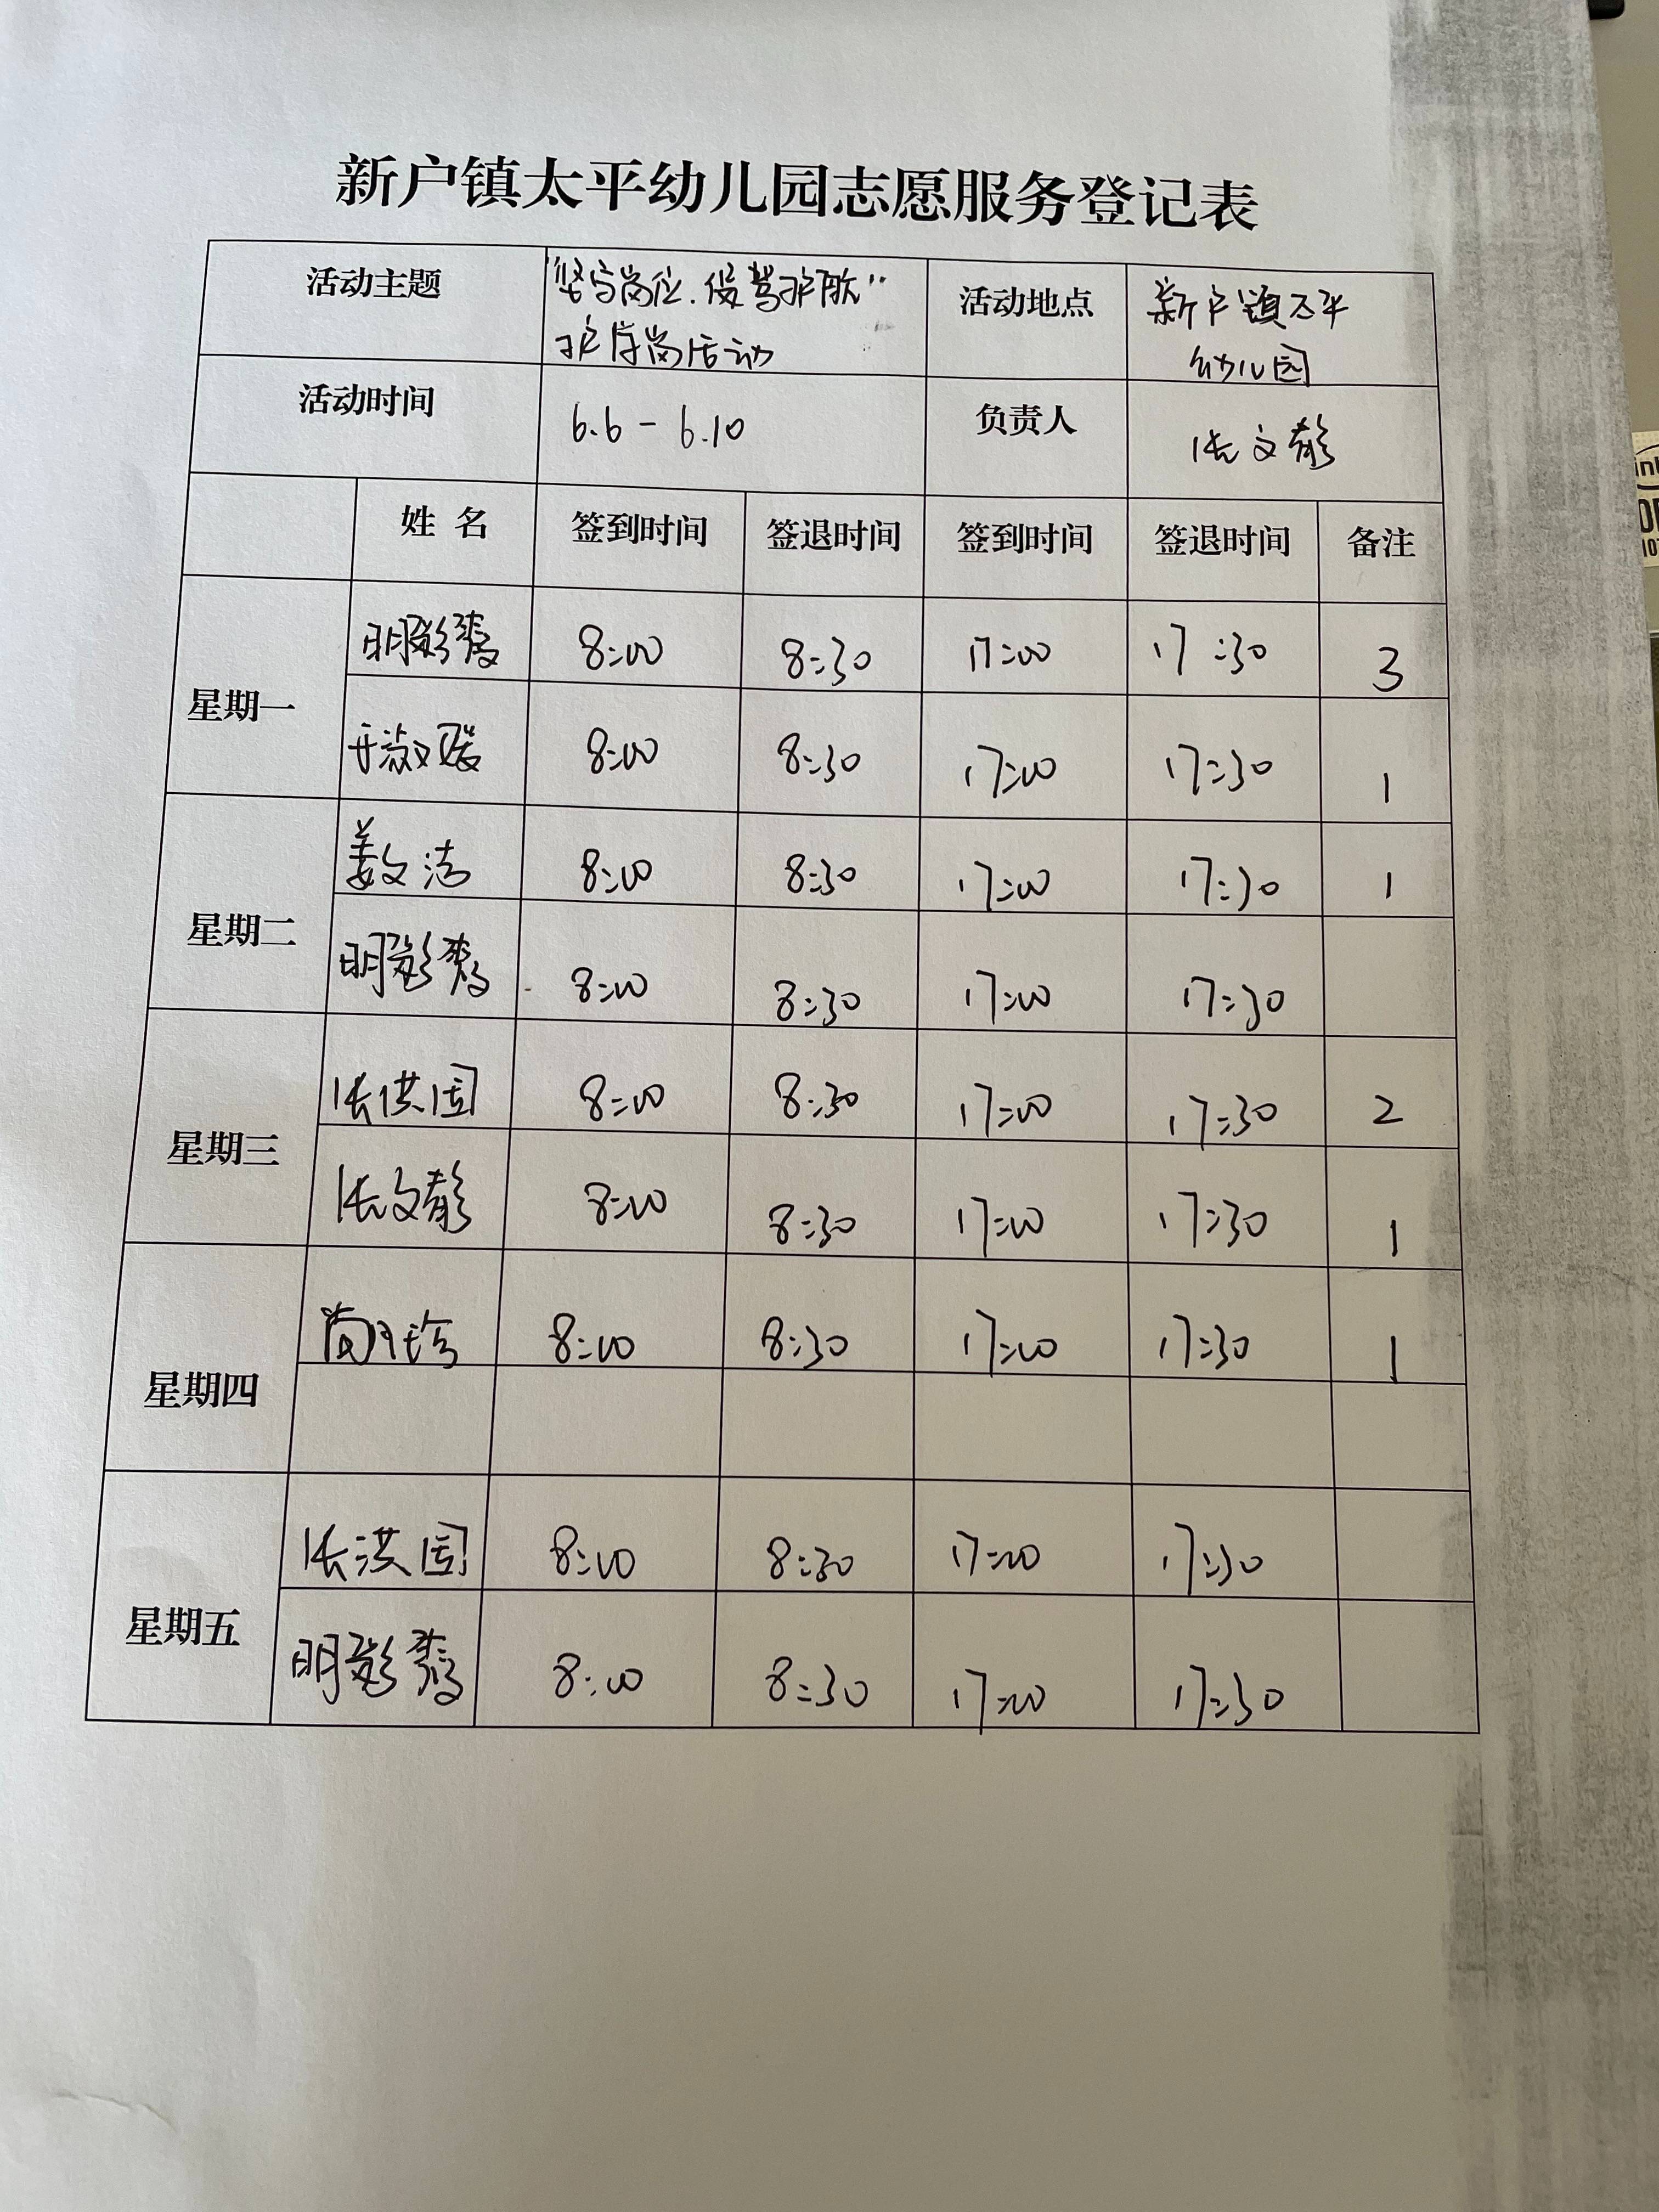 新户镇太平幼儿园志愿服务登记表
活动主题 "坚守岗位.保驾护航" 护岸岗活动 活动地点 新户镇太平幼儿园
活动时间 6.6-6.10 负责人 张文彰
姓 名 签到时间 签退时间 签到时间 签退时间 备注
星期一
8:00 8:30 17:00 17:30 3
8:00 8:30 17:00 17:30 1
星期二
姜文洁 8:00 8:30 17:00 17:30 1
8:00 8:30 17:00 17:30
星期三
张洪国 8:00 8:30 17:00 17:30 2
8:00 8:30 17:00 17:30 1
星期四
8:00 8:30 17:00 17:30 1
星期五
张洪国 8:00 8:30 17:00 17:30
8:00 8:30 17:00 17:30